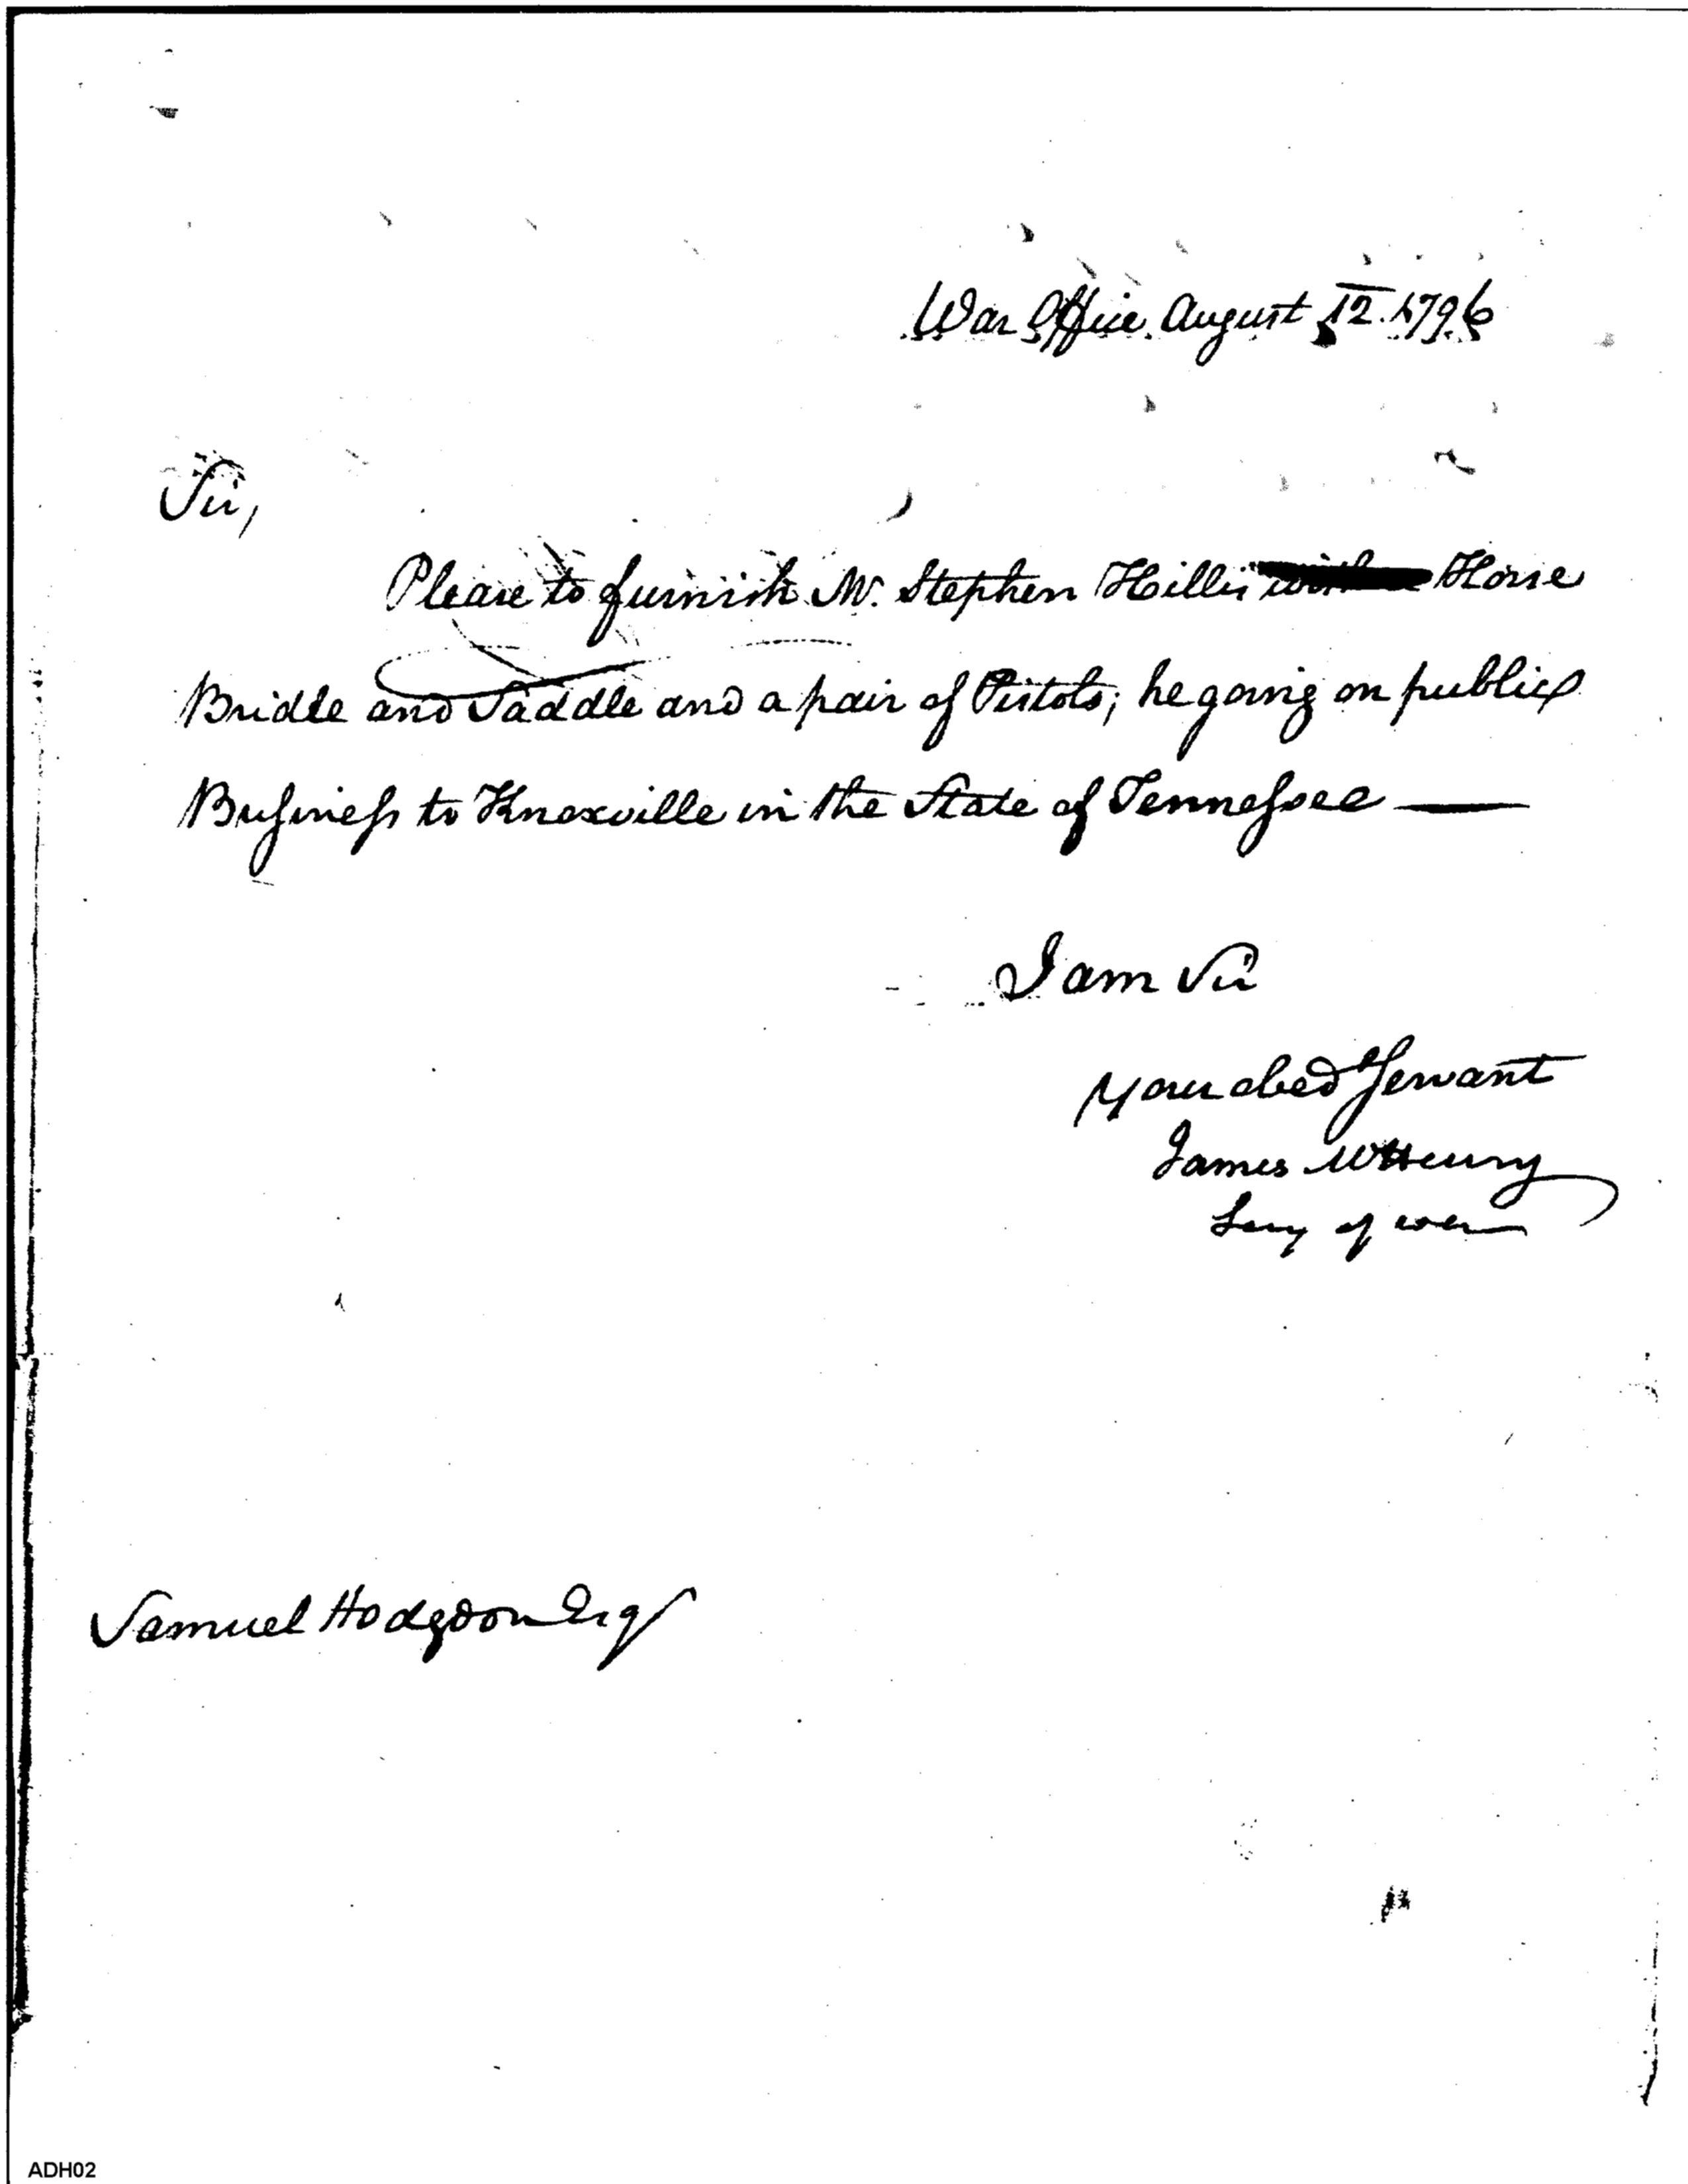 War Office August 12. 1796
Sir,
Please to furnish Mr. Stephen Hillis with a Horse
Bridle and Saddle and a pair of Pistols; he going on public
Business to Knoxville in the State of Tennessee —
I am Sir
Your obed Servant
James McHenry
Secy of war
Samuel Hodgdon Esq
ADH02